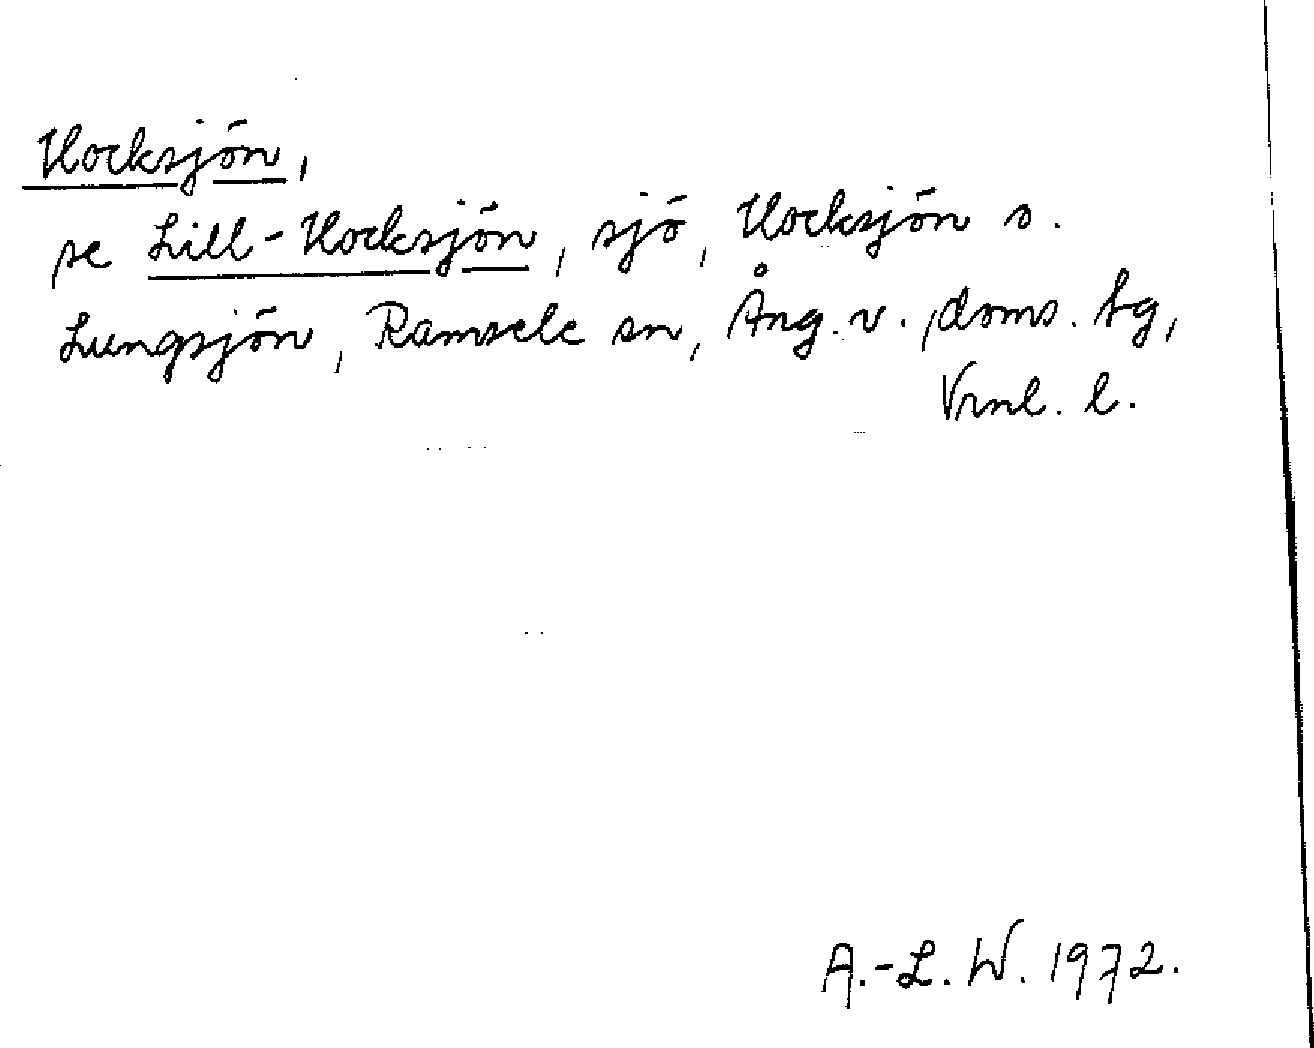 Hocksjön,
se Lill-Hocksjön, sjö, Hocksjön o.
Lungsjön, Ramsele sn, Ång. v., doms. bg,
Vrnl. l.
A.-L. W. 1972.